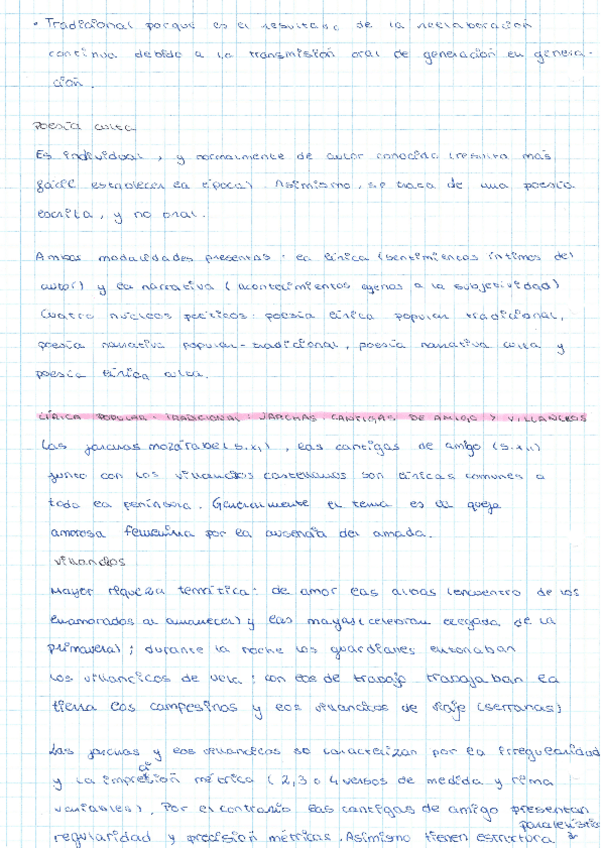 • Tradicional porque es el resultado de la reelaboración
continua debido a la transmisión oral de generación en genera-
ción.
Poesía culta
Es individual, y normalmente de autor conocido (resulta más
fácil establecer la época). Asimismo, se trata de una poesía
escrita, y no oral.
Ambas modalidades presentas: la lírica (sentimientos íntimos del
autor) y la narrativa (acontecimientos agenos a la subjetividad)
Cuatro nucleos poéticos: poesía lírica popular tradicional,
poesía narrativa popular-tradicional, poesía narrativa culta y
poesía lírica culta.
LÍRICA POPULAR-TRADICIONAL: JARCHAS, CANTIGAS DE AMIGO Y VILLANCICOS
Las jarchas mozárabe (s.XI), las cantigas de amigo (s.XII)
junto con los villancicos castellanos son líricas comunes a
toda la península. Generalmente el tema es la queja
amorosa femenina por la ausencia del amada.
Villancicos
Mayor riqueza temática: de amor las albas (encuentro de los
enamorados al amanecer) y las mayas (celebran llegada de la
primavera); durante la noche los guardianes entonaban
los villancicos de vela; con los de trabajo trabajaban la
tierra los campesinos y los villancicos de viaje (serranas)
Las jarchas y los villancicos se caracterizan por la irregularidad
y la métrica (2,3 o 4 versos de medida y rima
variables). Por el contrario las cantigas de amigo presentan
regularidad y precisión métricas. Asimismo tienen estrctura